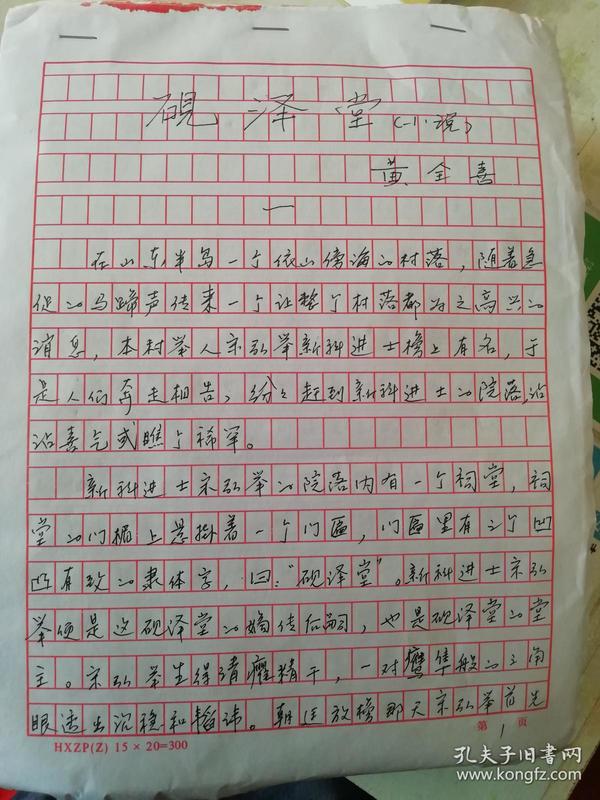 砚泽堂(小说)
黄全喜
一
在山东半岛一个依山傍海的村落，随着急
促的马蹄声传来一个让整个村落都为之高兴的
消息，本村举人宋弘举新科进士榜上有名，于
是人们奔走相告，纷纷赶到新科进士的院落沾
沾喜气或瞧个稀罕。
新科进士宋弘举的院落内有一个祠堂，祠
堂的门楣上悬掛着一个门匾，门匾里有三个凹
凸有致的隶体字，曰：“砚泽堂”。新科进士宋弘
举便是这砚泽堂的嫡传后嗣，也是砚泽堂的堂
主。宋弘举生得清癯精干，一对鹰隼般的三角
眼透出沉稳和韬讳。朝廷放榜那天宋弘举首先
第1页
HXZP(Z) 15×20=300
孔夫子旧书网
www.kongfz.com